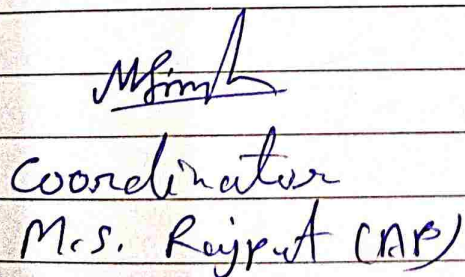 MSingh
Coordinator
M.S. Rajput (AP)